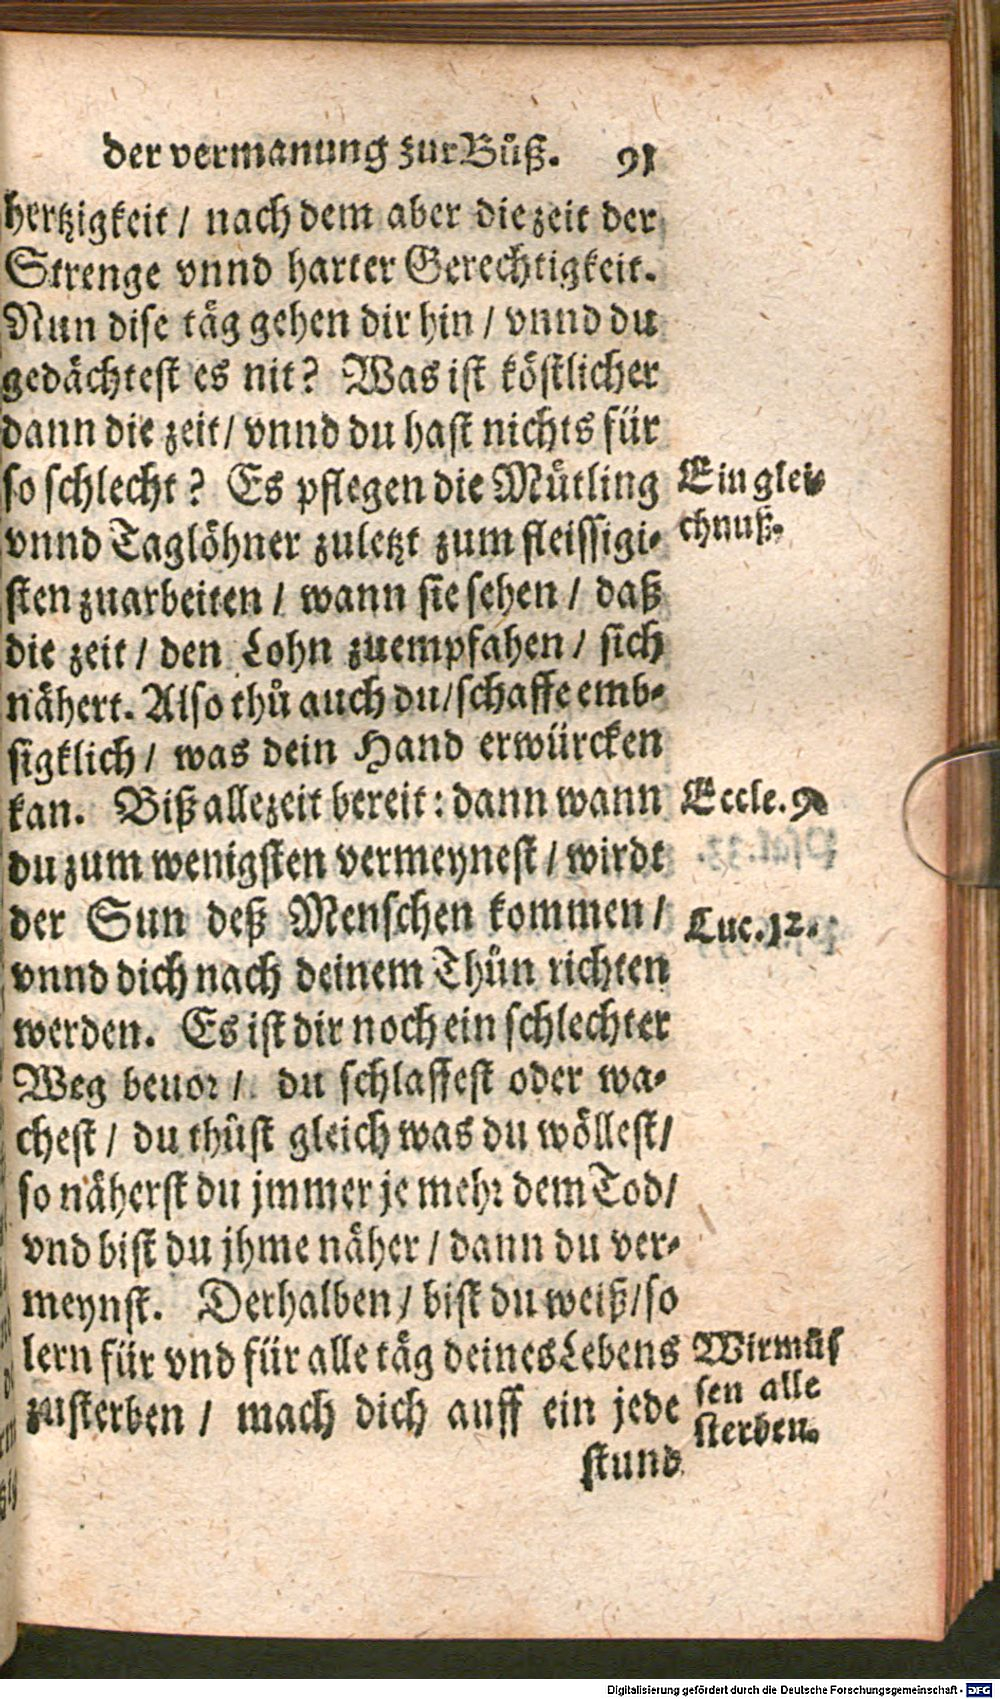 der vermanung zur Bůß. 91
hertzigkeit / nach dem aber die zeit der
Strenge vnnd harter Gerechtigkeit.
Nun dise täg gehen dir hin / vnnd du
gedächtest es nit? Was ist köstlicher
dann die zeit / vnnd du hast nichts für
so schlecht? Es pflegen die Mütling
Ein glei-
vnnd Taglöhner zuletzt zum fleissigi-
chnuß.
sten zuarbeiten / wann sie sehen / daß
die zeit / den Lohn zuempfahen / sich
nähert. Also thů auch du / schaffe emb-
sigklich / was dein Hand erwürcken
kan. Biß allezeit bereit: dann wann
Eccle. 9
du zum wenigsten vermeynest / wirdt
der Sun deß Menschen kommen /
Luc. 12.
vnnd dich nach deinem Thůn richten
werden. Es ist dir noch ein schlechter
Weg beuor / du schlaffest oder wa-
chest / du thůst gleich was du wöllest /
so näherst du jmmer je mehr dem Tod /
vnd bist du jhme näher / dann du ver-
meynst. Derhalben / bist du weiß / so
lern für vnd für alle täg deines Lebens
Wir müs
zusterben / mach dich auff ein jede
sen alle
sterben.
stund
Digitalisierung gefördert durch die Deutsche Forschungsgemeinschaft - DFG